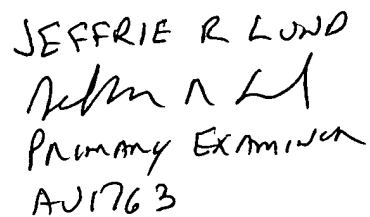 JEFFRIE R LUND
PRIMARY EXAMINER
AU1763